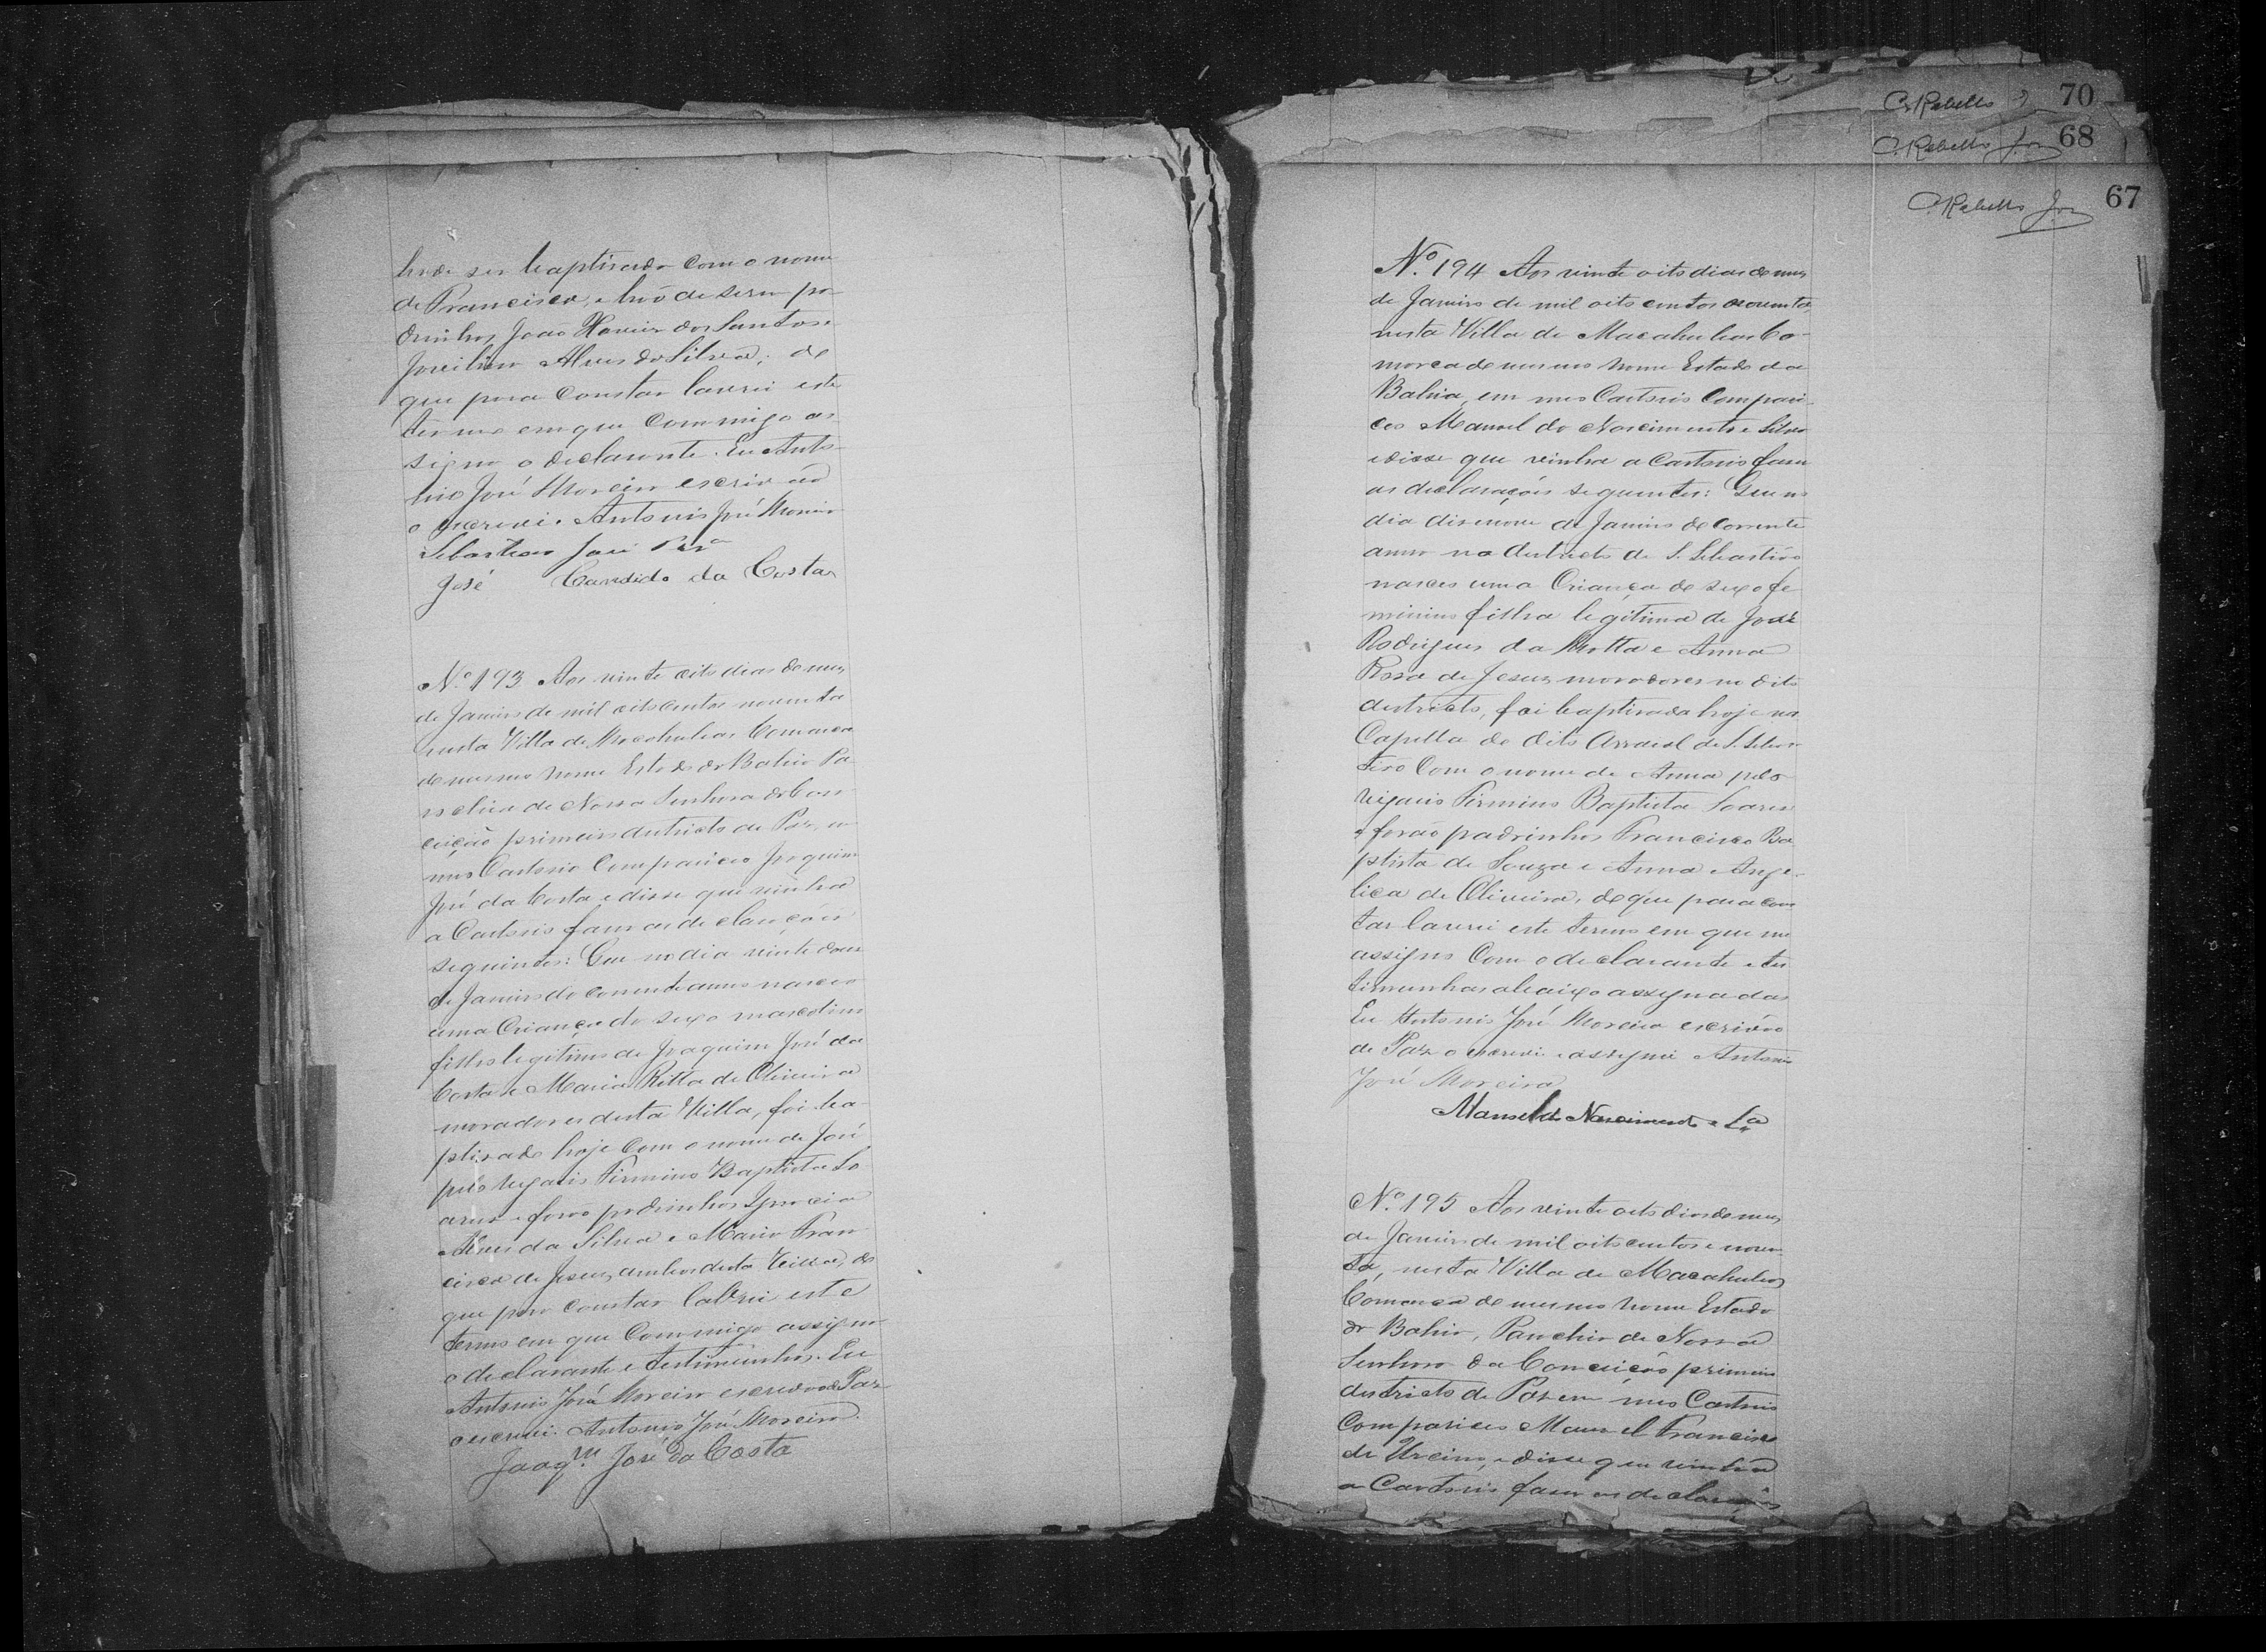 hade ser baptisado com o nome
de Francisco, e hão de serem pa-
drinhos João Xavier dos Santos e
Alves da Silva; de
que para constar lavrei este
termo em que commigo as-
signa o declarante. Eu Anto-
nio José Moreira escrivão
o escrevi. Antonio José Moreira
Sebastião José Per.ª
José Candido da Costa
N.º 193 Aos vinte oito dias do mez
de Janeiro de mil oito centos noventa
nesta Villa de Macahubas Comarca
do mesmo nome Estado da Bahia Pa-
rochia de Nossa Senhora da Con-
ceição primeiro districto de Paz, em
meo Cartorio compareceo Joaquim
José da Costa e disse que vinha
a Cartorio faser as declarações
seguintes: Que no dia vinte dous
de Janeiro do corrente anno nasceo
uma Criança do sexo mascolino
filho legitimo de Joaquim José da
Costa e Maria Ritta de Oliveira
moradores desta Villa, foi ba-
ptisado hoje com o nome de José
pelo vigario Firmino Baptista So-
ares e forão padrinhos Ignacio
Alves da Silva e Maria Fran-
cisca de Jesus, ambos desta Villa, do
que para constar labrei este
termo em que commigo assigna
o declarante e testimunhas. Eu
Antonio José Moreira escrivão de Paz
o escrevi. Antonio José Moreira.
Joaq.m José da Costa
C. Rabello J 70
C. Rabello Jor 68
C. Rabello Jor 67
N.º 194 Aos vinte oito dias do mez
de Janeiro de mil oito centos noventa,
nesta Villa de Macahubas Co-
marca do mesmo nome Estado da
Bahia, em meo Cartorio compare-
ceo Manoel do Nascimento e Silva
e disse que vinha a Cartorio faser
as declarações seguintes: Que no
dia disenove de Janeiro do corrente
anno no destricto de S. Sebastião
nasceo uma Criança do sexo fe
minino filha legitima de José
Rodrigues da Motta e Anna
Rosa de Jesus moradores no dito
destricto, foi baptisada hoje na
Capella do dito Arraial de S. Sebas-
tião com o nome de Anna pelo
vigario Firmino Baptista Soares
e forão padrinhos Francisco Ba
ptista de Souza e Anna Ange-
lica de Oliveira, do que para cons
tar lavrei este termo em que me
assigno com o declarante e tes
timunhas abaixo assignadas
Eu Antonio José Moreira escrivão
de Paz o escrevi e assignei Antonio
José Moreira
Manoel do Nascimento e S.ª
N.º 195 Aos vinte oito dias do mez
de Janeiro de mil oito centos e noven-
ta, nesta Villa de Macahubas
Comarca do mesmo nome Estado
da Bahia, Parochia de Nossa
Senhora da Conceição primeiro
destricto de Paz em meo Cartorio
Compareceo Manoel Francisco
de, e disse que vinha
a Cartorio faser as declarações